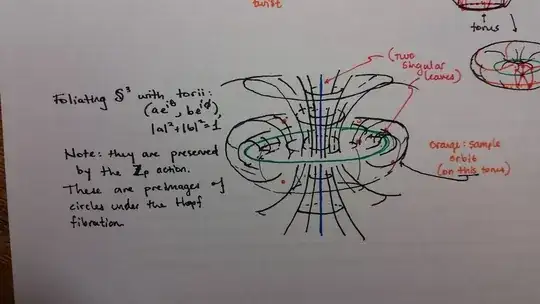 twist
torus
Foliating S³ with torii:
(ae^{iθ}, be^{iφ}),
|a|²+|b|²=1
(Two
singular
leaves)
Note: they are preserved
by the ℤp action.
These are preimages of
circles under the Hopf
fibration.
Orange: sample
orbit
(on this torus)